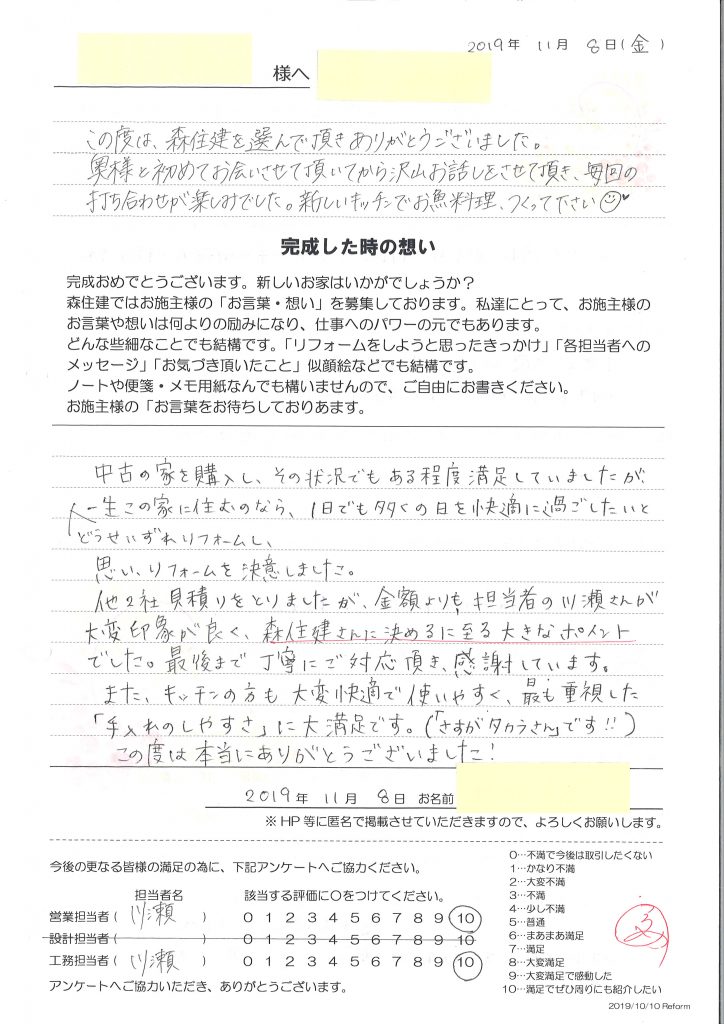 2019年 11月 8日(金)
様へ
この度は、森住建を選んで頂きありがとうございました。
奥様と初めてお会いさせて頂いてから沢山お話しをさせて頂き、毎回の
打ち合わせが楽しみでした。新しいキッチンでお魚料理、つくって下さい
完成した時の想い
完成おめでとうございます。新しいお家はいかがでしょうか?
森住建ではお施主様の「お言葉・想い」を募集しております。私達にとって、お施主様の
お言葉や想いは何よりの励みになり、仕事へのパワーの元でもあります。
どんな些細なことでも結構です。「リフォームをしようと思ったきっかけ」「各担当者への
メッセージ」「お気づき頂いたこと」似顔絵などでも結構です。
ノートや便箋・メモ用紙なんでも構いませんので、ご自由にお書きください。
お施主様の「お言葉をお待ちしておりあます。
中古の家を購入し、その状況でもある程度満足していましたが、
一生この家に住むのなら、1日でも多くの日を快適に過ごしたいと
どうせいずれリフォームし、
思い、リフォームを決意しました。
他2社見積りをとりましたが、金額よりも、担当者の川瀬さんが
大変印象が良く、森住建さんに決めるに至る大きなポイント
でした。最後まで丁寧にご対応頂き、感謝しています。
また、キッチンの方も大変快適で使いやすく、最も重視した
「手入れのしやすさ」に大満足です。(「さすがタカラさん」です!!)
この度は本当にありがとうございました!
2019年 11月 8日 お名前
※HP等に匿名で掲載させていただきますので、よろしくお願いします。
今後の更なる皆様の満足の為に、下記アンケートへご協力ください。
担当者名 該当する評価に○をつけてください。
営業担当者( 川瀬 ) 0 1 2 3 4 5 6 7 8 9 10
設計担当者( ) 0 1 2 3 4 5 6 7 8 9 10
工務担当者( 川瀬 ) 0 1 2 3 4 5 6 7 8 9 10
アンケートへご協力いただき、ありがとうございます。
0…不満で今後は取引したくない
1…かなり不満
2…大変不満
3…不満
4…少し不満
5…普通
6…まあまあ満足
7…満足
8…大変満足
9…大変満足で感動した
10…満足でぜひ周りにも紹介したい
2019/10/10 Reform